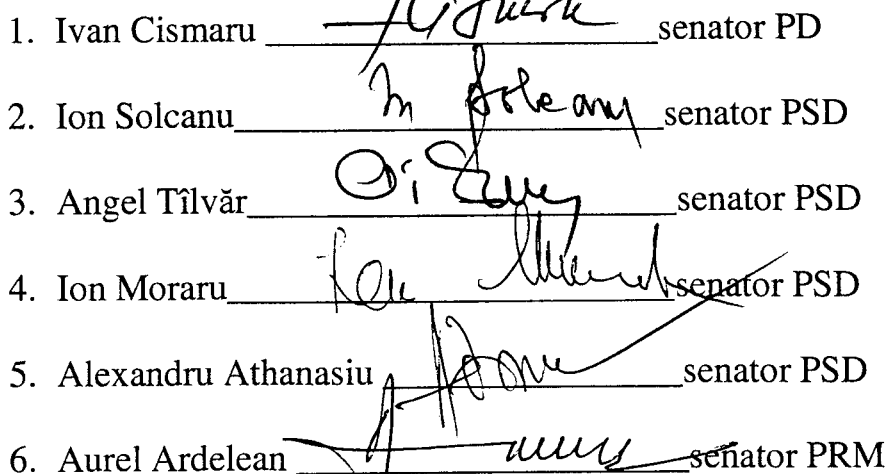 1. Ivan Cismaru senator PD
2. Ion Solcanu senator PSD
3. Angel Tîlvăr senator PSD
4. Ion Moraru senator PSD
5. Alexandru Athanasiu senator PSD
6. Aurel Ardelean senator PRM